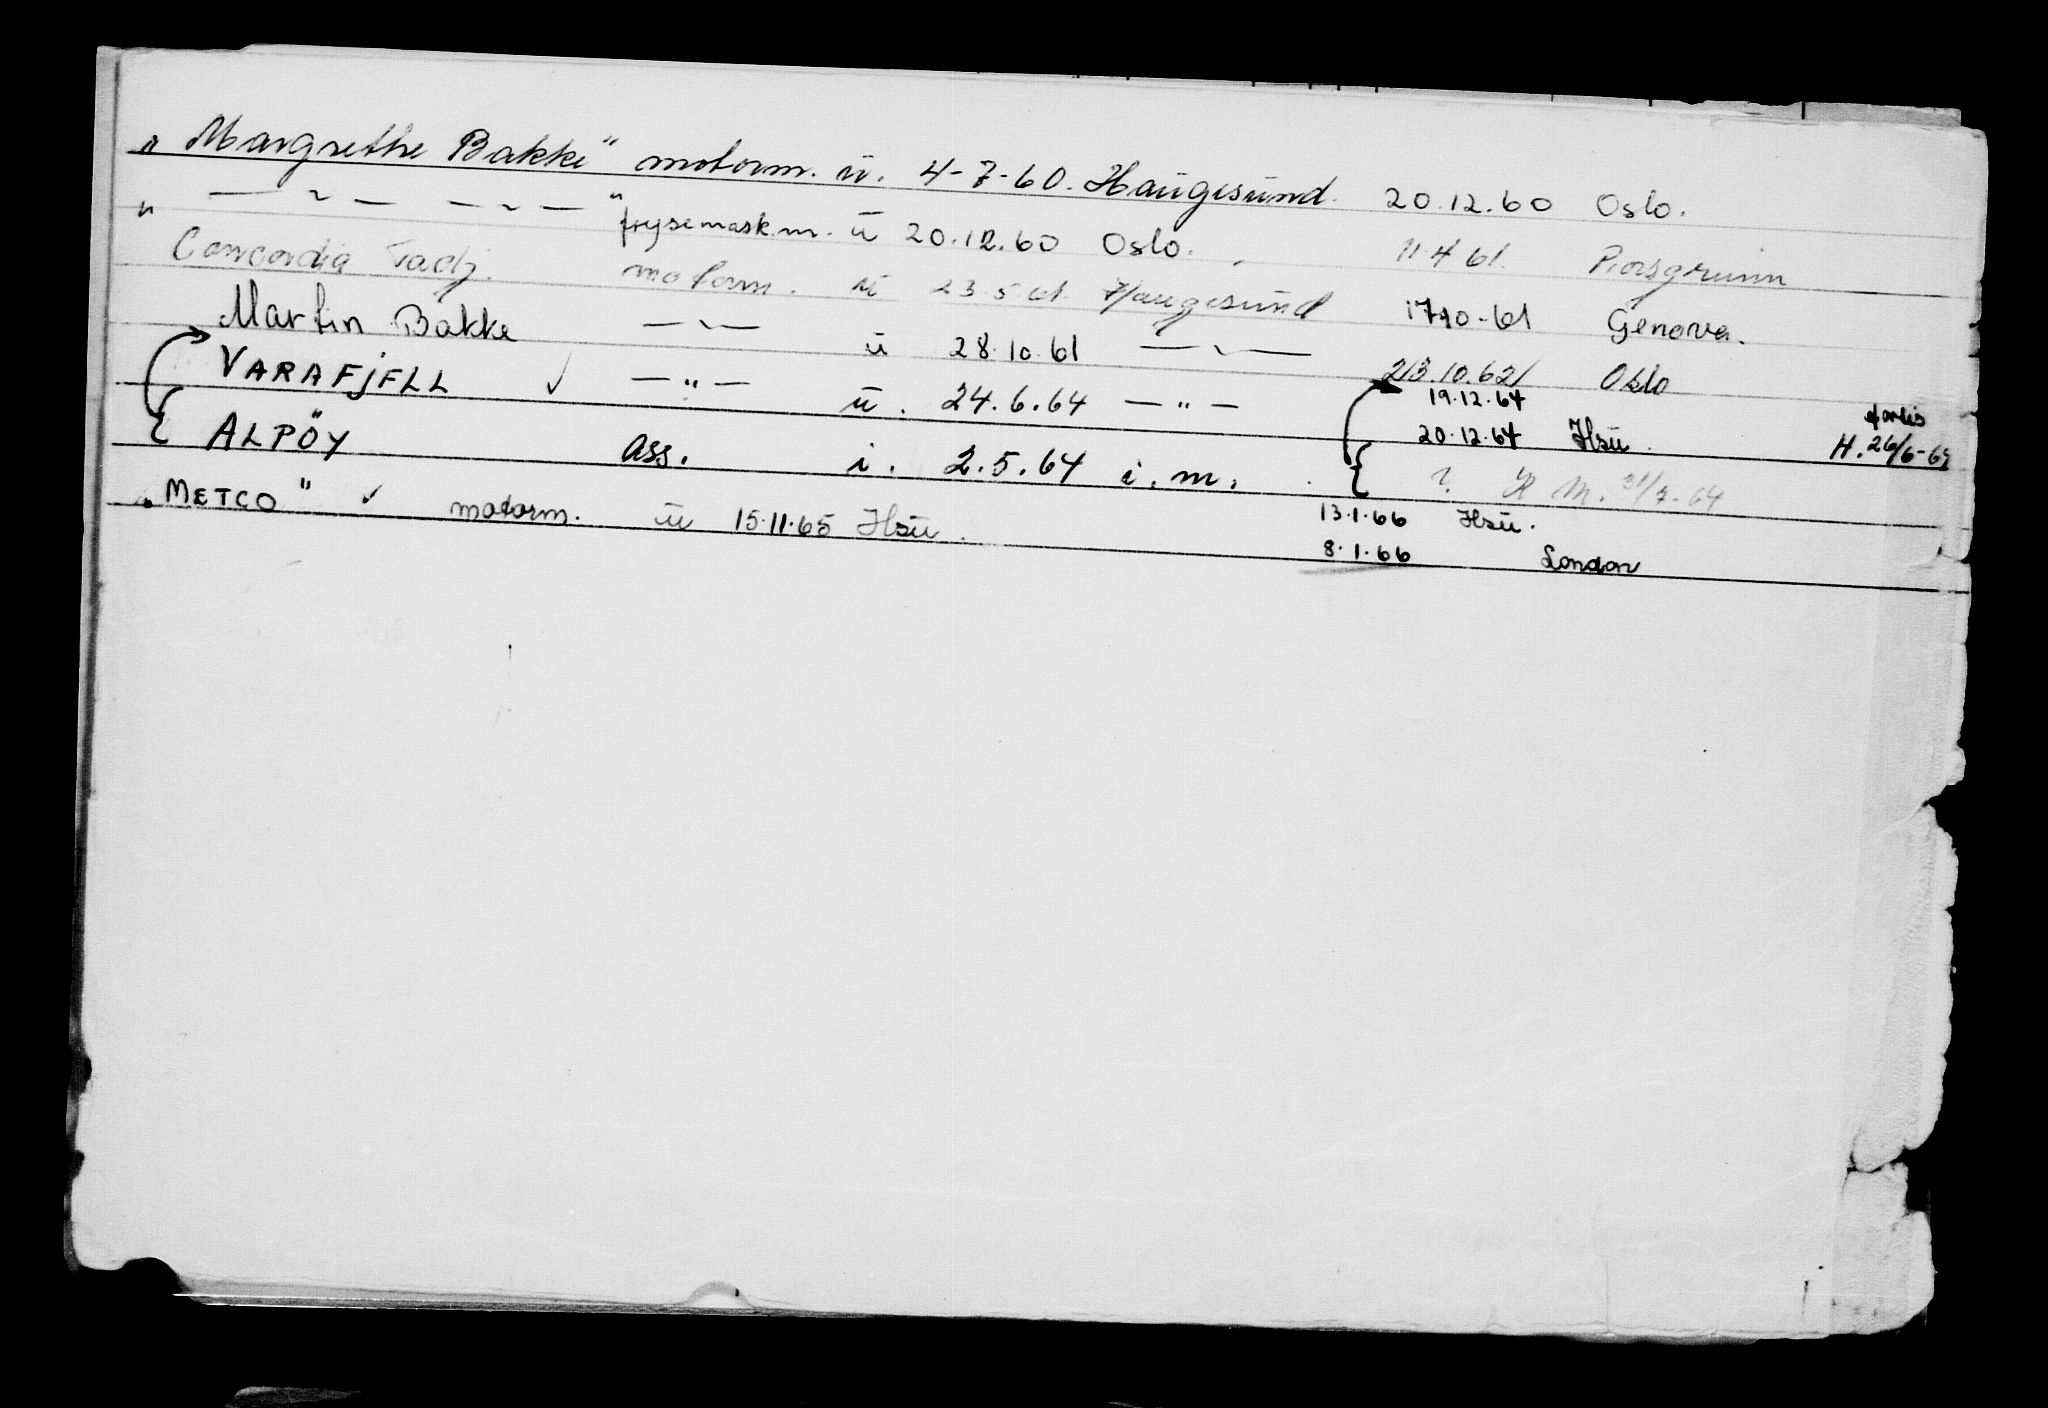 „ Margrethe Bakke" motorm. ü. 4-7-60. Haugesund. 20.12.60 Oslo.
„ — „ — — „ — " frysemask.m. ü 20.12.60 Oslo. 11.4 61. Porsgrunn
Concordia Tadj. motorm. ü 23.5.61. Haugesund 17.10-61 Genova.
Martin Bakke — „ — ü 28.10.61 — „ — 23.10.62 Oslo
VARAFJELL ✓ — „ — ü. 24.6.64 — „ — 19.12.64
20.12.64 Hsü. H. 26/6-64
ALPÖY ass. i. 2.5.64 i.m. ? H M. 31/7-64
„METCO" ✓ motorm. ü 15.11.65 Hsü. 13.1.66 Hsü.
8.1.66 London